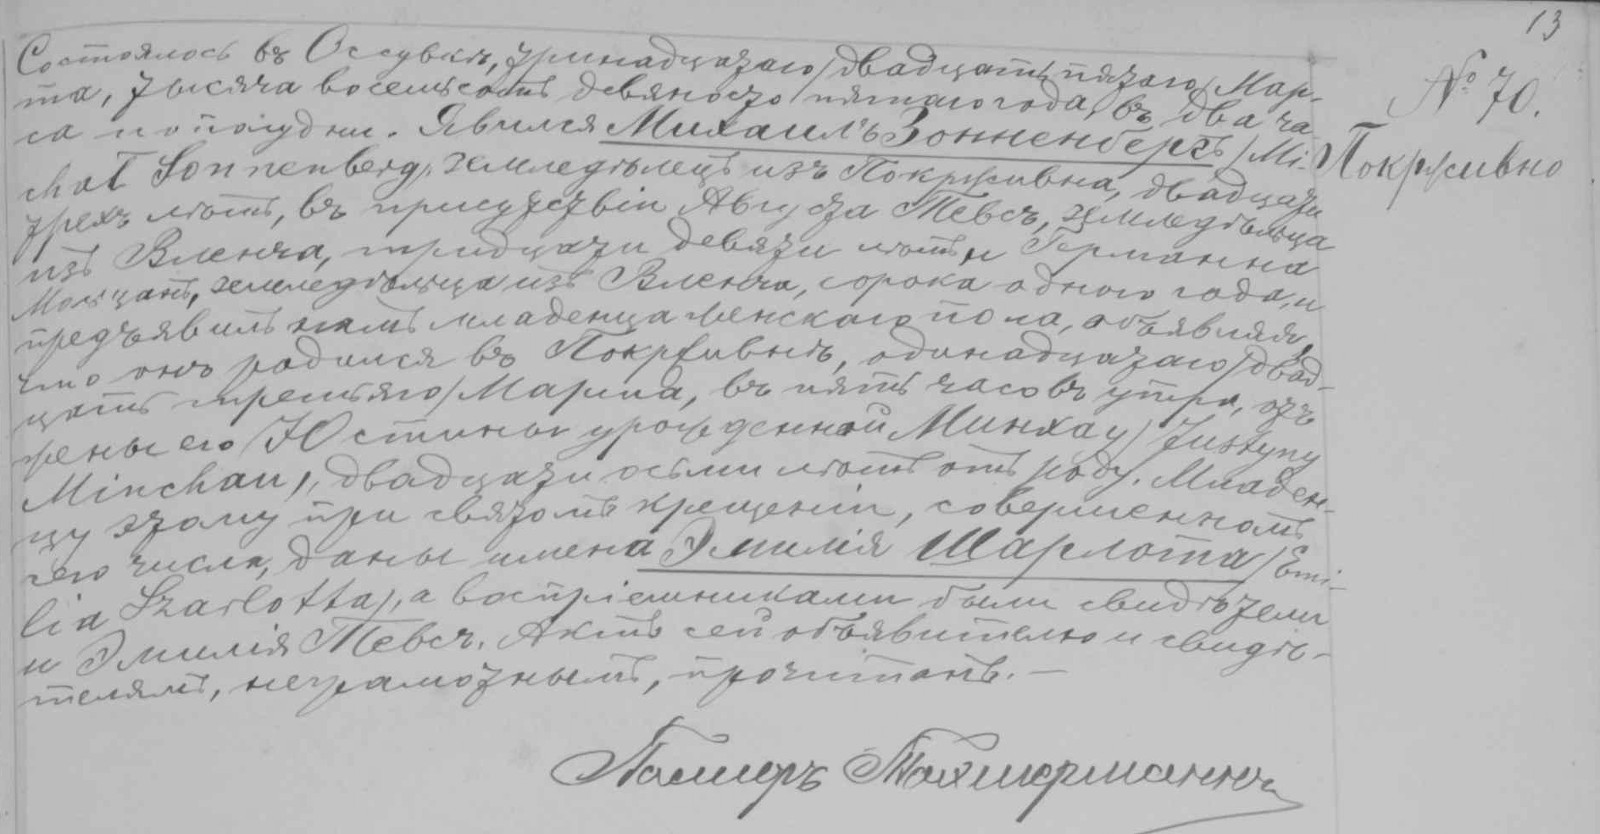 13
№ 70.
Покрживно
Состоялось въ Оссувкѣ, тринадцатаго /двадцать пятаго/ Мар-
та, тысяча восемьсотъ девяносто пятаго года, въ два ча-
са пополудни. Явился Михаилъ Зонненбергъ /Mi-
chał Sonnenberg/, земледѣлецъ изъ Покрживна, двадцати
трехъ лѣтъ, въ присутствіи Августа Тевсъ, земледѣльца
изъ Вленча, тридцати девяти лѣтъ и Германна
земледѣльца изъ Вленча, сорока одного года, и
предъявилъ намъ младенца женскаго пола, объявляя,
что онъ родился въ Покрживнѣ, одинадцатаго /двад-
цать третьяго/ Марта, въ пять часовъ утра, отъ
жены его Юстины урожденной Минхау /Justyny
Minchau/, двадцати осьми лѣтъ отъ роду. Младен-
цу этому при святомъ крещеніи, совершенномъ
сего числа, даны имена Эмилія Шарлота /Emi-
lia Szarlotta/, а воспріемниками были свидѣтели
и Эмилія Тевсъ. Актъ сей объявителю и свидѣ-
телямъ, неграмотнымъ, прочитанъ. —
Пасторъ